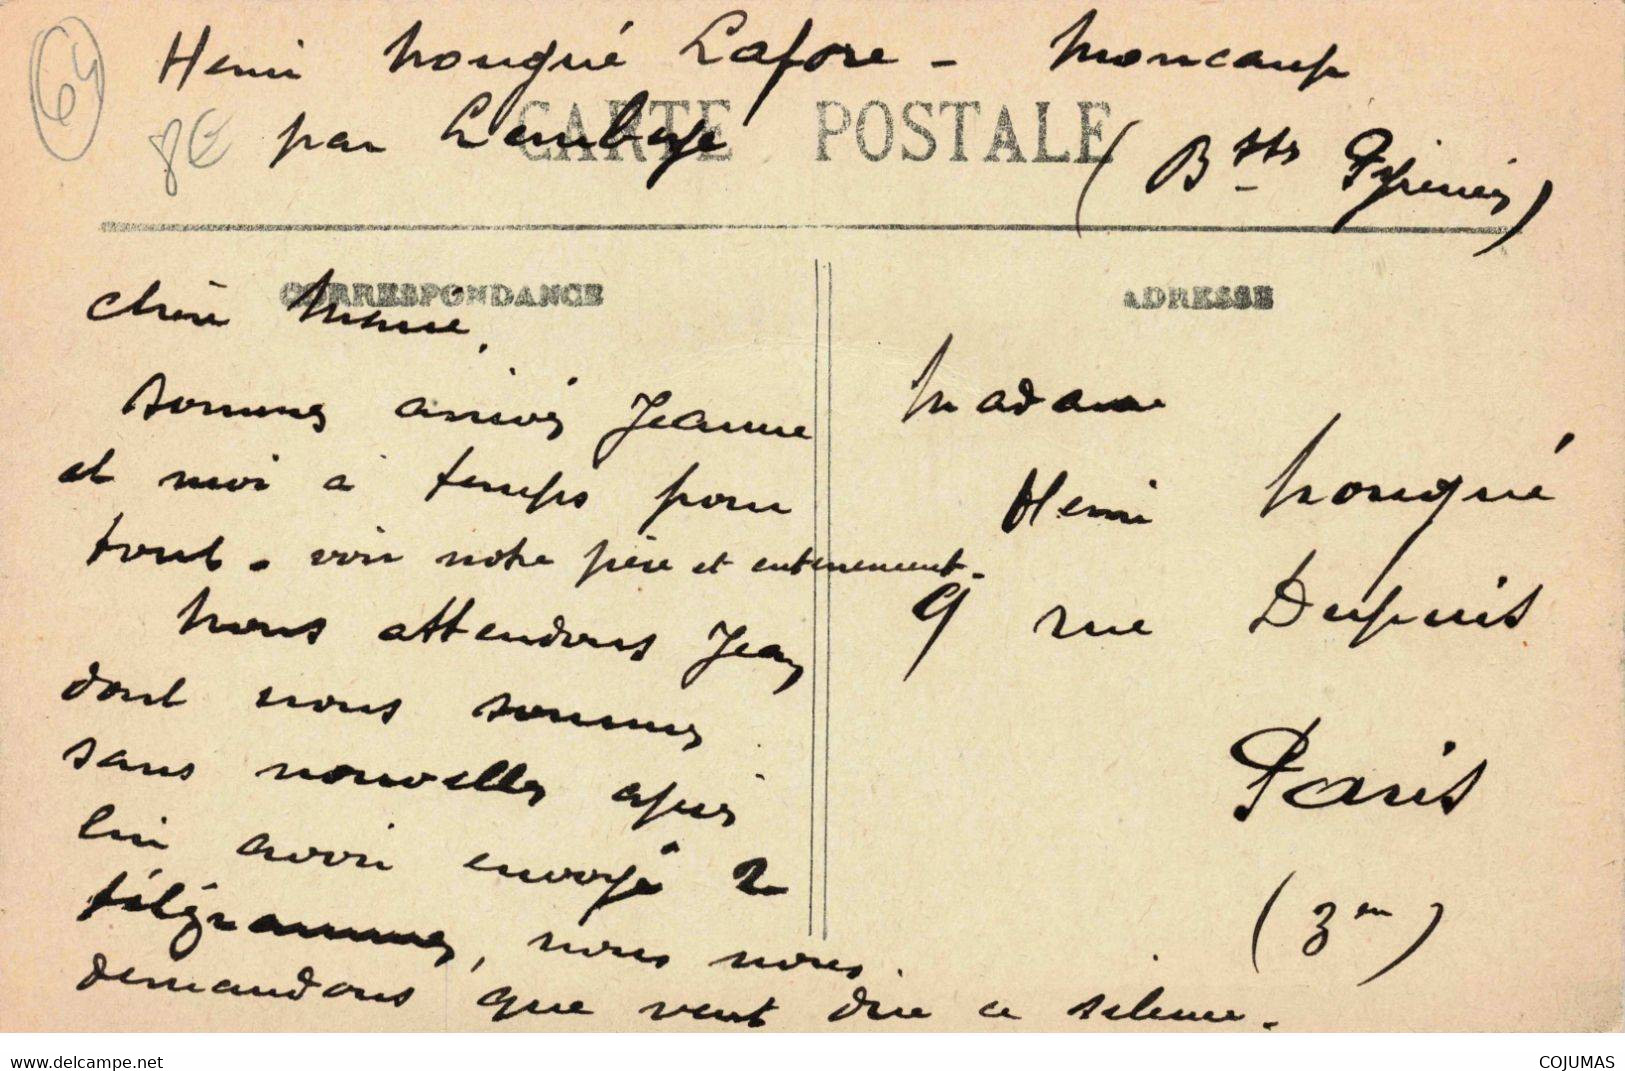 64
8€
Henri Nougué Lafore - Moncaup
par Lembeye
CARTE POSTALE
(Bses Pyrénées)
CORRESPONDANCE
ADRESSE
Chère Mimie,
sommes arrivés Jeanne
et moi à temps pour
tout. voir notre père et enterrement.
Nous attendons Jean
dont nous sommes
sans nouvelles après
lui avoir envoyé 2
télégrammes, nous nous
demandons que veut dire ce silence.
Madame
Henri Nougué
9 rue Dupuis
Paris
(3em)
delcampe.net
COJUMAS